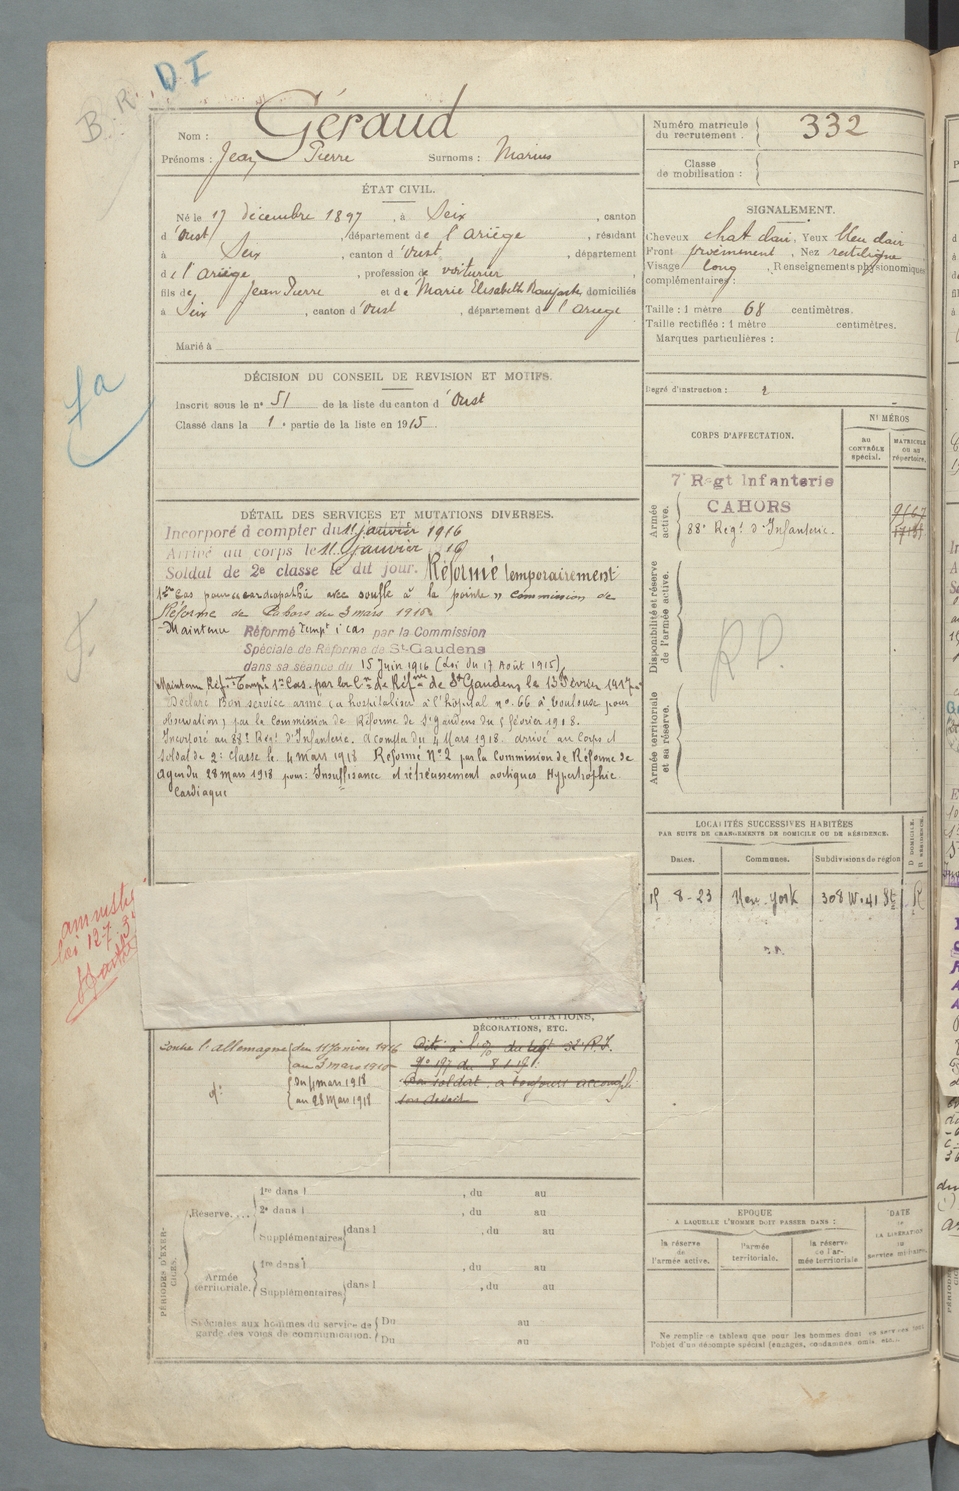 B. R. D I
Nom : Géraud
Prénoms : Jean Pierre Surnoms : Marius
Numéro matricule du recrutement : 332
Classe de mobilisation :
ÉTAT CIVIL.
Né le 17 décembre 1897, à Seix, canton
d'Oust, département de l'Ariège, résidant
à Seix, canton d'Oust, département
de l'Ariège, profession de voiturier
fils de Jean Pierre et de Marie Elisabeth, domiciliés
à Seix, canton d'Oust, département de l'Ariège
Marié à
SIGNALEMENT.
Cheveux chat clair, Yeux bleu clair
Front proéminent, Nez rectiligne
Visage long, Renseignements physionomiques
complémentaires :
Taille : 1 mètre 68 centimètres.
Taille rectifiée : 1 mètre centimètres.
Marques particulières :
Degré d'instruction : 2
DÉCISION DU CONSEIL DE REVISION ET MOTIFS.
Inscrit sous le n° 51 de la liste du canton d'Oust
Classé dans la 1e partie de la liste en 1915.
CORPS D'AFFECTATION.
NUMÉROS
au contrôle spécial.
matricule ou au répertoire.
Armée active.
7e Regt Infanterie
CAHORS
88e Regt d'Infanterie.
Disponibilité et réserve de l'armée active.
R.D.
Armée territoriale et sa réserve.
DÉTAIL DES SERVICES ET MUTATIONS DIVERSES.
Incorporé à compter du 11 janvier 1916
Arrivé au corps le 11 janvier 16
Soldat de 2e classe le dit jour. Réformé temporairement
1er cas pour « cardiopathie avec souffle à la pointe » commission de
Réforme de Cahors du 3 mars 1916
- Maintenu Réformé Tempt 1 cas par la Commission
Spéciale de Réforme de St-Gaudens
dans sa séance du 15 Juin 1916 (Loi du 17 Août 1915)
Maintenu Réf. Tempt 1er Cas. par la Con de Réfme de St Gaudens le 13 Février 1917
Déclaré Bon service armé (a hospitaliser à l'hôpital n° 66 à Toulouse pour
observation) par la Commission de Réforme de St Gaudens du 5 février 1918.
Incorporé au 88e Regt d'Infanterie. A compter du 4 Mars 1918. arrivé au Corps et
soldat de 2e classe le 4 mars 1918 Réformé N° 2 par la Commission de Réforme de
Agen du 28 mars 1918 pour : Insuffisance et rétrécissement aortiques Hypertrophie
Cardiaque
LOCALITÉS SUCCESSIVES HABITÉES
PAR SUITE DE CHANGEMENTS DE DOMICILE OU DE RÉSIDENCE.
Dates. Communes. Subdivisions de région D DOMICILE. R RÉSIDENCE.
8-23 New-York 308 W. 41 St R
amnistié
loi
CITATIONS,
DÉCORATIONS, ETC.
contre l'allemagne du 11 Janvier 1916
au 3 mars 1916
d° du 4 mars 1918
au 28 Mars 1918
Cité à l'o/ du regt
Bon soldat. a toujours accompli
son devoir
PÉRIODES D'EXERCICES.
Réserve....
1re dans l , du au
2e dans l , du au
Supplémentaires dans l , du au
Armée territoriale.
1re dans l , du au
Supplémentaires dans l , du au
Spéciales aux hommes du service de garde des voies de communication.
Du au
Du au
EPOQUE
A LAQUELLE L'HOMME DOIT PASSER DANS :
la réserve de l'armée active.
l'armée territoriale.
la réserve de l'armée territoriale
DATE de LA LIBÉRATION du service militaire.
Ne remplir ce tableau que pour les hommes dont le service fait
l'objet d'un décompte spécial (engagés, condamnés, omis, etc.).